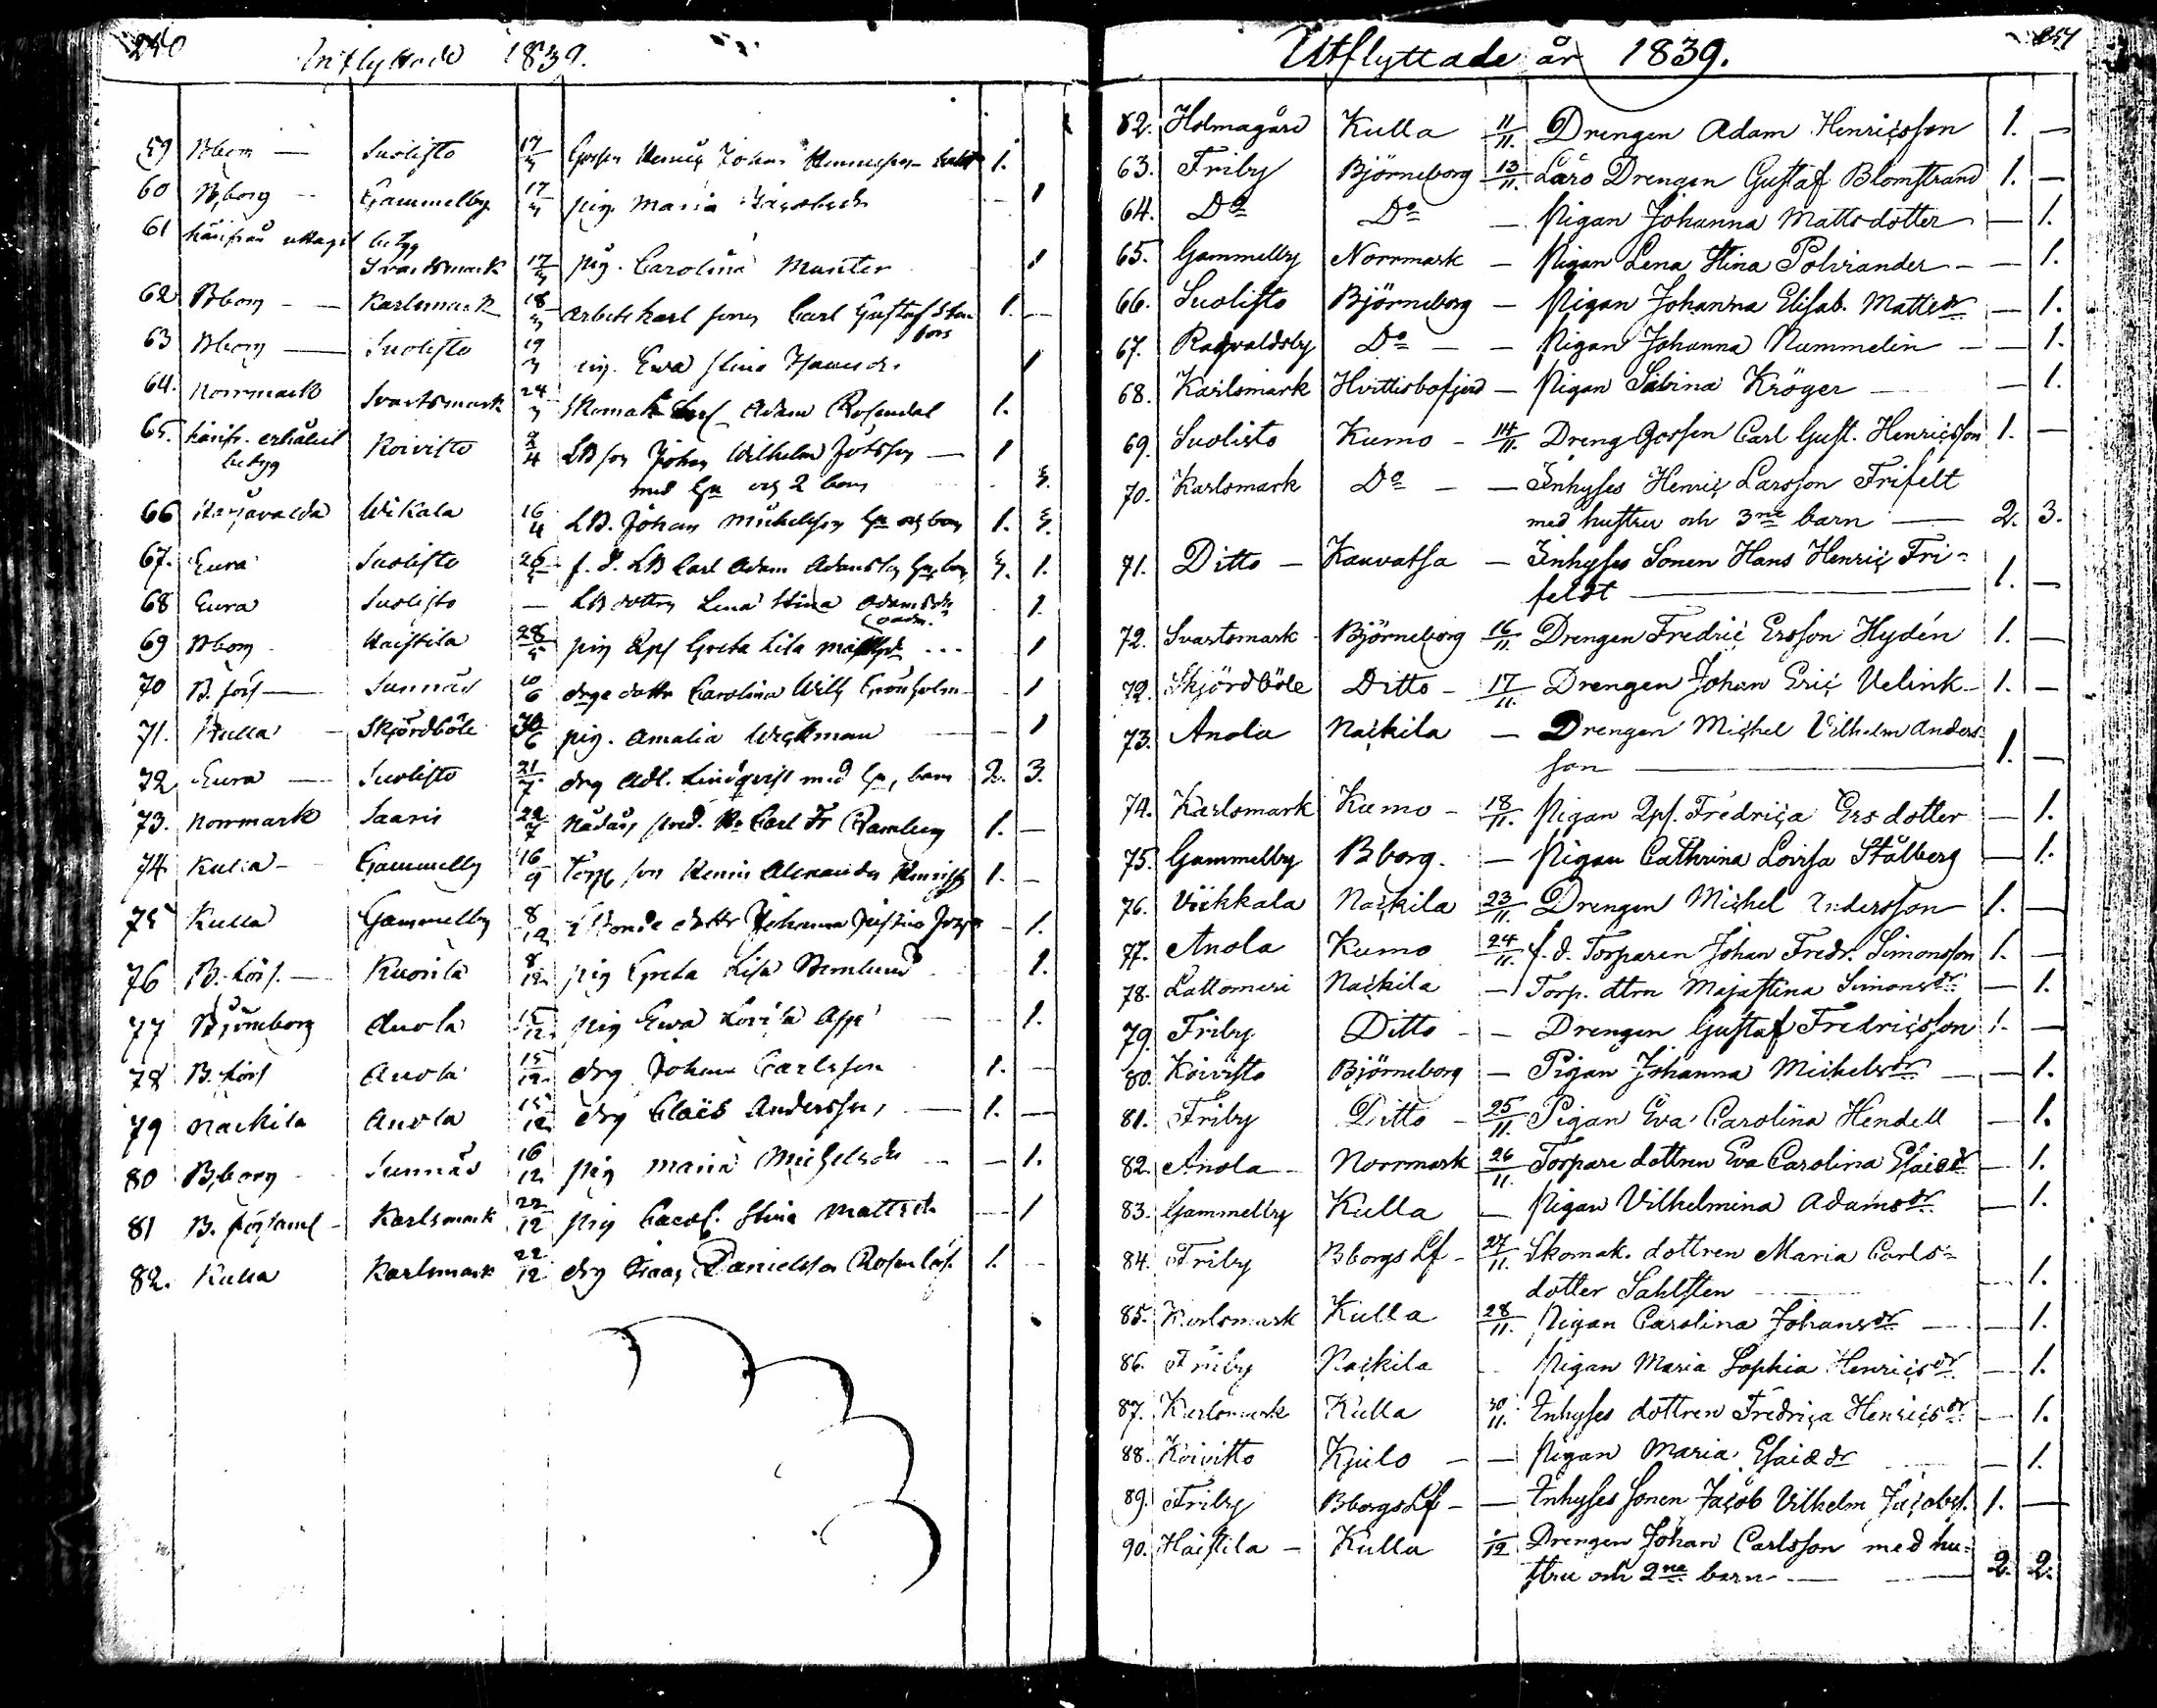 Inflyttade 1839.
59 Bborg — Suolisto 17/3 Gossen Johan 1.
60 Bborg — Gammelby 17/3 pig. Maria 1
61 härifrån uttagit betyg
Svartsmark 17/3 pig. Carolina Munter 1
62 Bborg — Karlsmark 18/3 arbetskarl sonen Carl Gustaf 1. —
63 Bborg — Suolisto 19/3 pig. Ewa Stina 1
64. Norrmark Svartsmark 24/3 Adam Rosendal 1.
65. härifr. erhållit betyg Koivisto 2/4 LB son Johan Wilhelm — 1
med hu och 2 barn 3.
66 Wikala 16/4 LB. Johan Michelsson hu och barn 1. 3.
67. Eura Suolisto 26 f. d. LB Carl Adam Adamsson 3. 1.
68 Eura Suolisto — LB dottren Lena Stina Adamsdr 1.
69 Bborg Haistila 28/5 pig Greta Lisa 1
70 B. förs — Sunnäs 10/6 drgs dottr Carolina Wilh Grönholm 1
71. Kulla — Skjördböle 30/6 pig. Amalia Wickman — 1
72 Eura — Suolisto 21/7 drg Adl. Lindqvist med hu, barn 2. 3.
73. Norrmark Saaris 22/7 Carl Fr Ramberg 1. —
74 Kulla — Gammelby 16/9 Torp son Henric Alexander 1. —
75 Kulla Gammelby 8/12 Bonde dottr Johanna Justina — 1.
76 B. förs. — Kuorila 8/12 pig Greta Lisa 1.
77 Björneborg Anola 15/12 pig Ewa Lovisa — 1.
78 B. förs Anola 15/12 drg Johan Carlsson 1. —
79 Nackila Anola 15/12 drg Claës Andersson — 1. —
80 Bborg Sunnäs 16/12 pig Maria Michelsdr — 1.
81 B. Karlsmark 22/12 pig Stina Mattsdr 1
82. Kulla Karlsmark 22/12 drg Isaac Danielsson 1. —
Utflyttade år 1839.
62. Holmagård Kulla 11/11. Drengen Adam Henricsson 1. —
63. Friby Björneborg 13/11. Läro Drengen Gustaf Blomstrand 1. —
64. Do Do — Pigan Johanna Mattsdotter — 1.
65. Gammelby Norrmark — Pigan Lena Stina Polviander — — 1.
66. Suolisto Björneborg — Pigan Johanna Elisab. Mattsdr — 1.
67. Ragvaldsby Do — — Pigan Johanna Nummelin — — 1.
68. Karlsmark Hvittisbofjerd — Pigan Sabina Kröger — — 1.
69. Suolisto Kumo — 14/11. Dreng Gossen Carl Gust. Henricsson 1. —
70. Karlsmark Do — — Inhyses Henric Larsson Frifelt
med hustru och 3ne barn — 2. 3.
71. Ditto — Kauvatsa — Inhyses Sonen Hans Henric Fri-
feldt — 1. —
72. Svartsmark Björneborg 16/11. Drengen Fredric Ersson Hydén 1. —
72. Skjördböle Ditto — 17/11. Drengen Johan Eric Velink — 1. —
73. Anola Nackila — Drengen Michel Vilhelm Anders
son — 1. —
74. Karlsmark Kumo — 18/11. Pigan Fredrica Ersdotter — 1.
75. Gammelby Bborg. — Pigan Cathrina Lovisa Stålberg — 1.
76. Viikkala Nackila 23/11. Drengen Michel Andersson 1. —
77. Anola Kumo 24/11. f. d. Torparen Johan Fredr. Simonsson 1. —
78. Lattomeri Nackila — Torp. dtrn Majastina Simonsdr — 1.
79. Friby Ditto — — Drengen Gustaf Fredricsson 1. —
80. Koivisto Björneborg — Pigan Johanna Michelsdr — — 1.
81. Friby Ditto — 25/11. Pigan Eva Carolina Hendell — 1.
82. Anola — Norrmark 26/11. Torpare dottren Eva Carolina Esaiædr — 1.
83. Gammelby Kulla — Pigan Vilhelmina Adamsdr — 1.
84. Friby Bborgs Lf — 27/11. Skomak. dottren Maria Carls-
dotter Sahlsten — 1.
85. Karlsmark Kulla 28/11. Pigan Carolina Johansdr — — 1.
86. Friby Nackila — Pigan Maria Sophia Henricsdr — 1.
87. Karlsmark Kulla 30/11. Inhyses dottren Fredrica Henricsdr — 1.
88. Koivisto Kjulo — — Pigan Maria Esaiædr — 1.
89. Friby Bborgs Lf — — Inhyses sonen Jacob Vilhelm Jacobss. 1. —
90. Haistila — Kulla /12 Drengen Johan Carlsson med hu-
stru och 2ne barn — 2. 2.